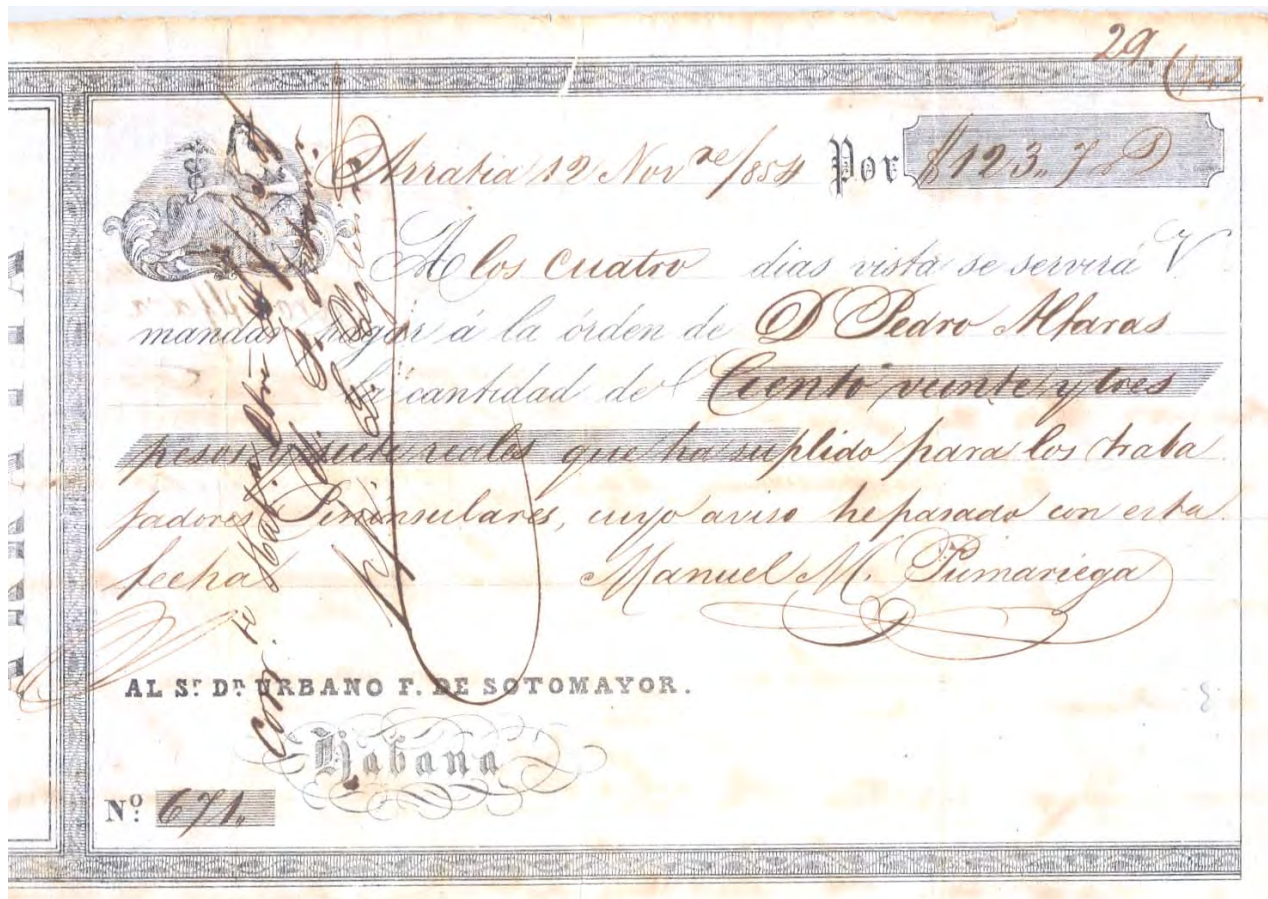 29.
Arratia 12 Nov.re/854 Por $123. 7 r
A los cuatro dias vista se servirá V
mandar pagar á la órden de D Pedro Alfaras
la cantidad de Ciento veinte y tres
pesos y siete reales que ha suplido para los traba
jadores Peninsulares, cuyo aviso he pasado con esta
fecha Manuel M. Pumariega
AL Sr. Dn. URBANO F. DE SOTOMAYOR.
Habana
Nº: 671.